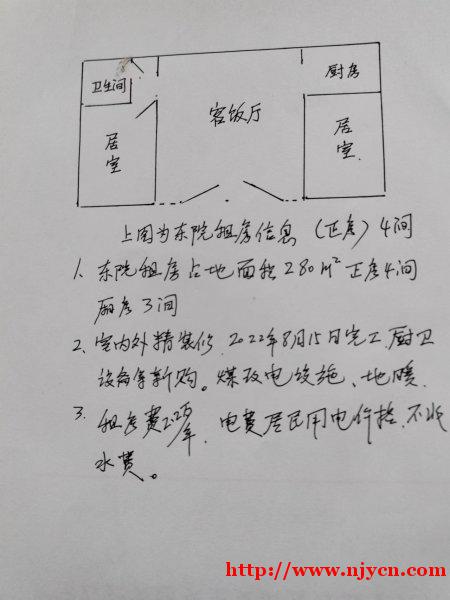 卫生间
厨房
客饭厅
居室
居室
上图为东院租房信息（正房）4间
1、东院租房占地面积280m²正房4间
厢房3间
2、室内外精装修，2022年8月15日完工，厨卫
设备等新购。煤改电设施、地暖。
3、租房费2.2万/年，电费居民用电价格，不收
水费。
http://www.njycn.com